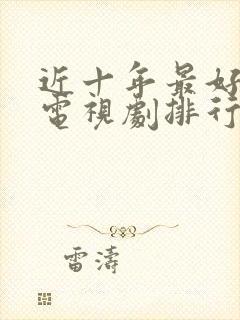 近十年最好
電視劇排行
雷濤